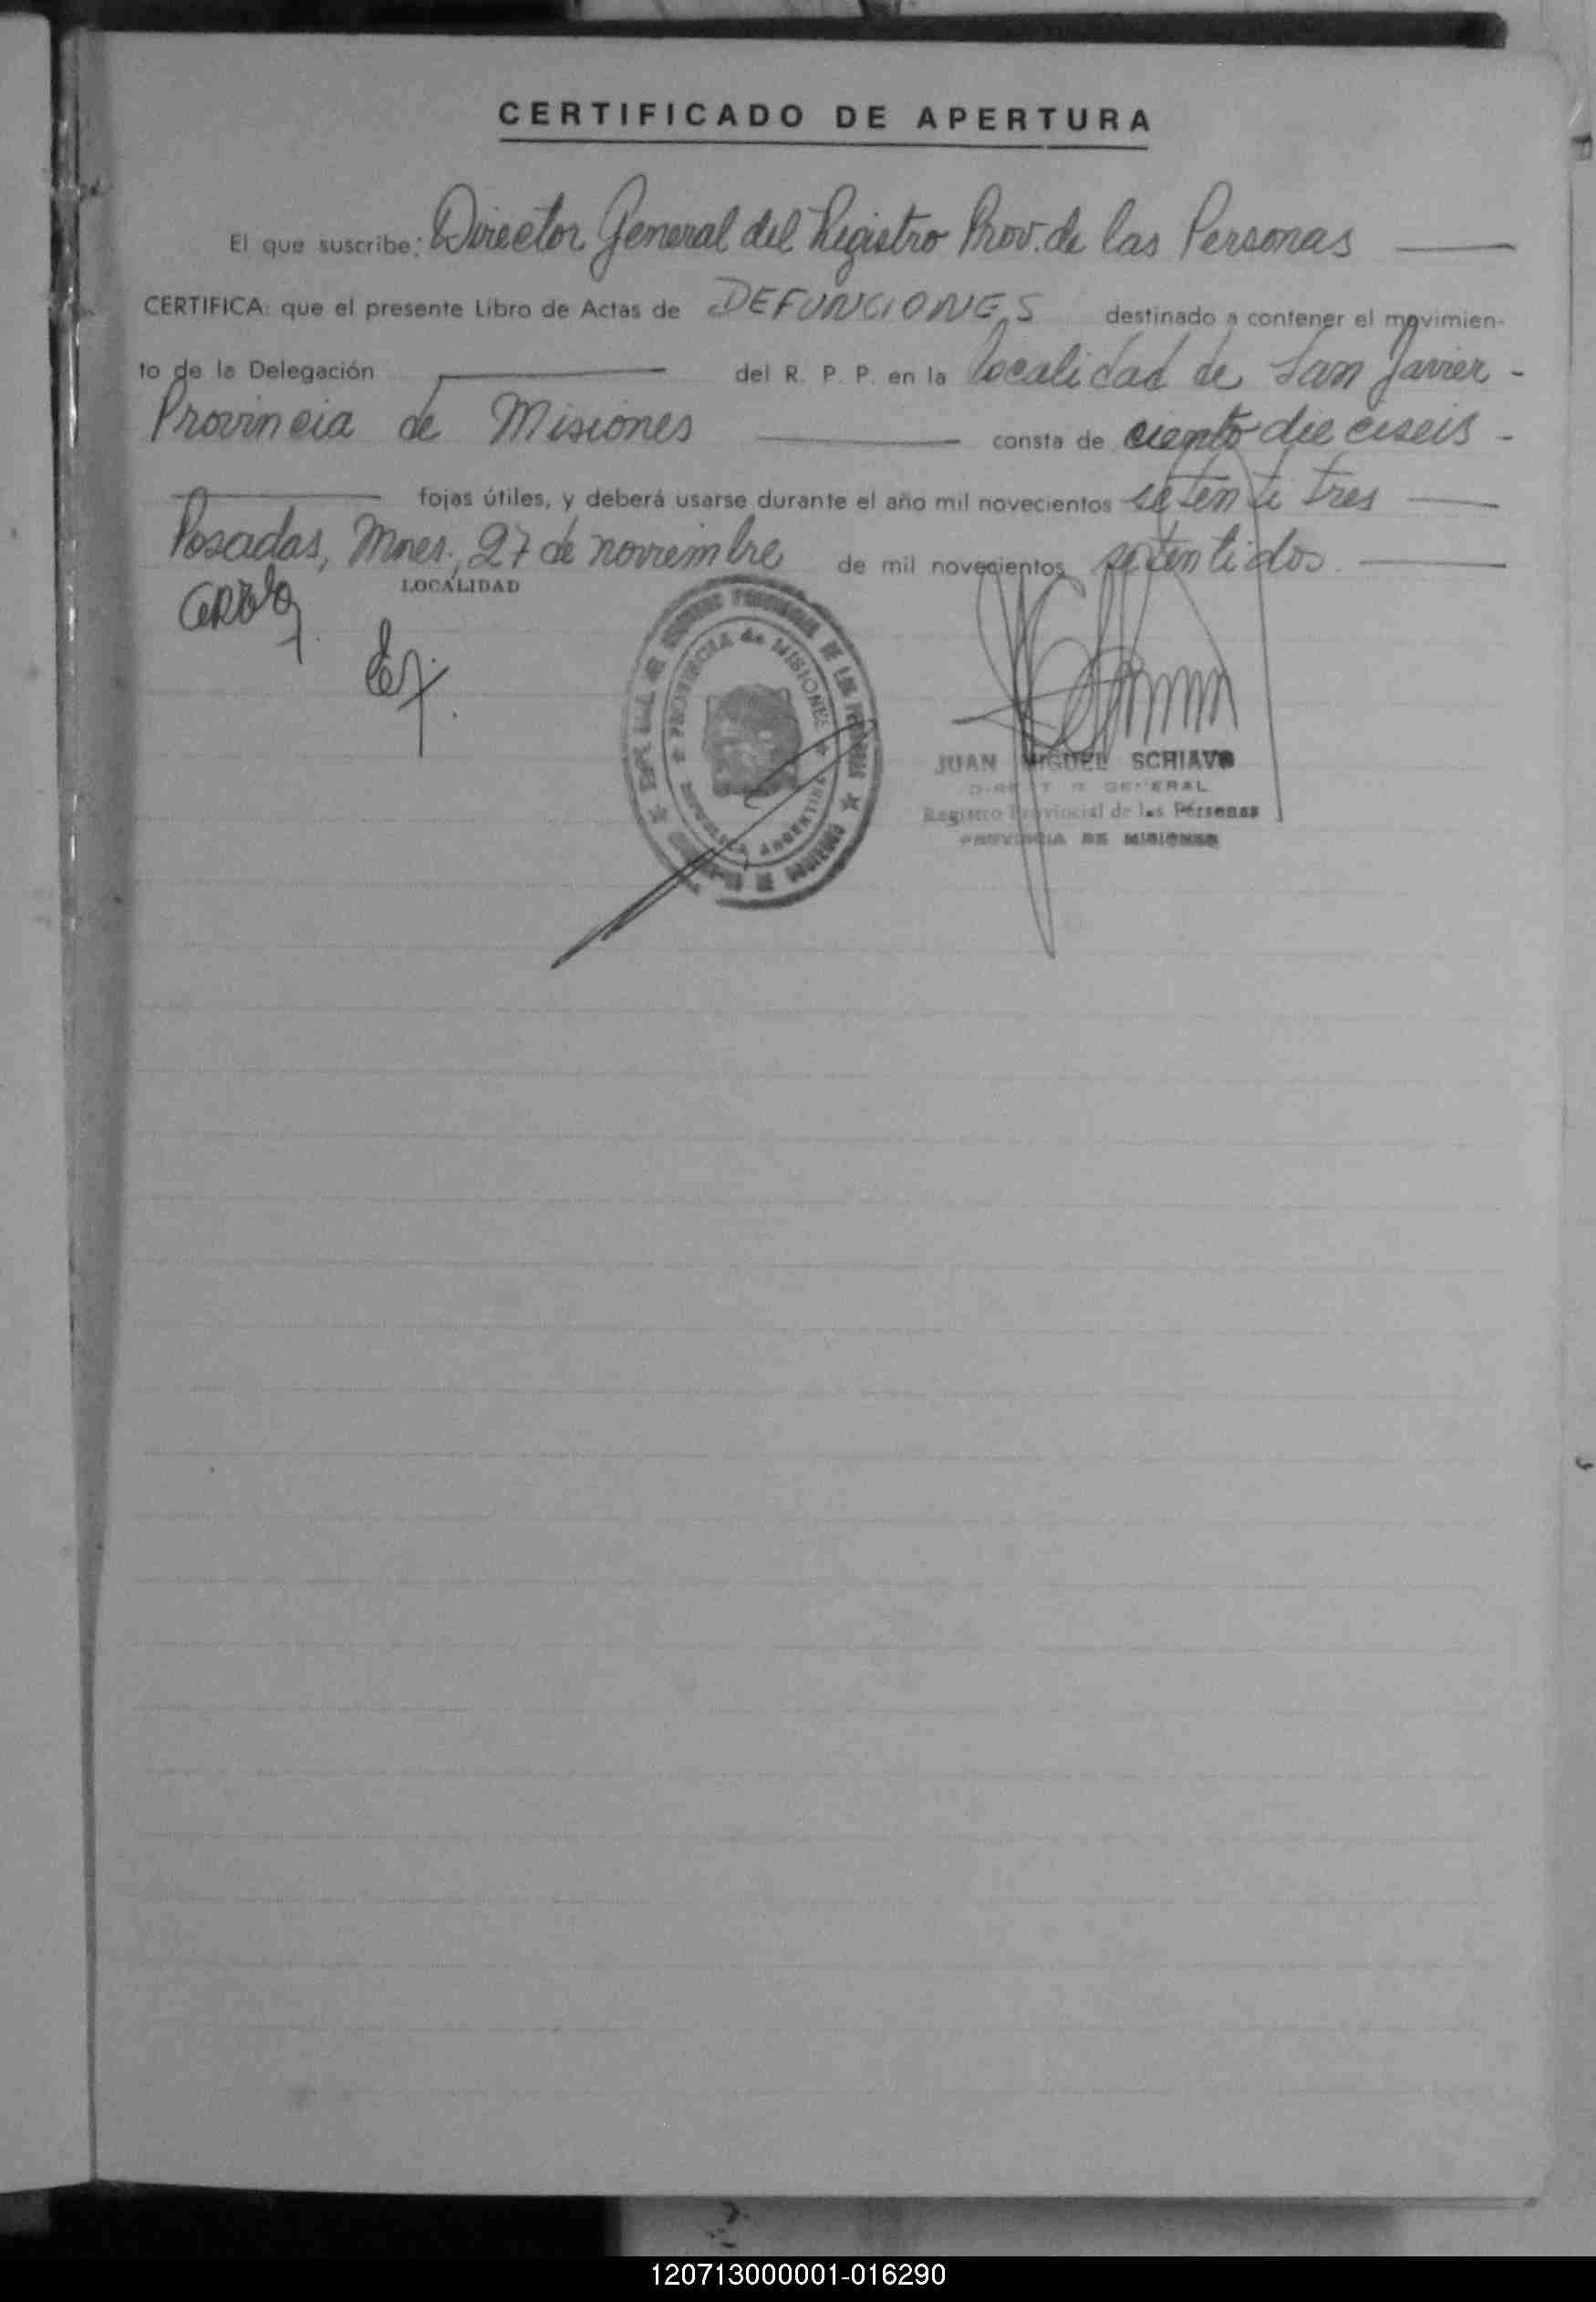 CERTIFICADO DE APERTURA
El que suscribe: Director General del Registro Prov. de las Personas
CERTIFICA: que el presente Libro de Actas de DEFUNCIONES destinado a contener el movimien-
to de la Delegación del R. P. P. en la localidad de San Javier -
Provincia de Misiones consta de ciento dieciseis -
fojas útiles, y deberá usarse durante el año mil novecientos setentitres
Posadas, Mnes; 27 de noviembre de mil novecientos setentidos.
LOCALIDAD
PROVINCIA de MISIONES
REPUBLICA ARGENTINA
JUAN MIGUEL SCHIAVO
DIRECTOR GENERAL
Registro Provincial de las Personas
PROVINCIA DE MISIONES
120713000001-016290